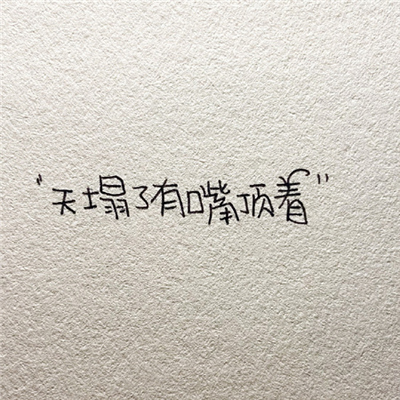 “天塌了有嘴顶着”